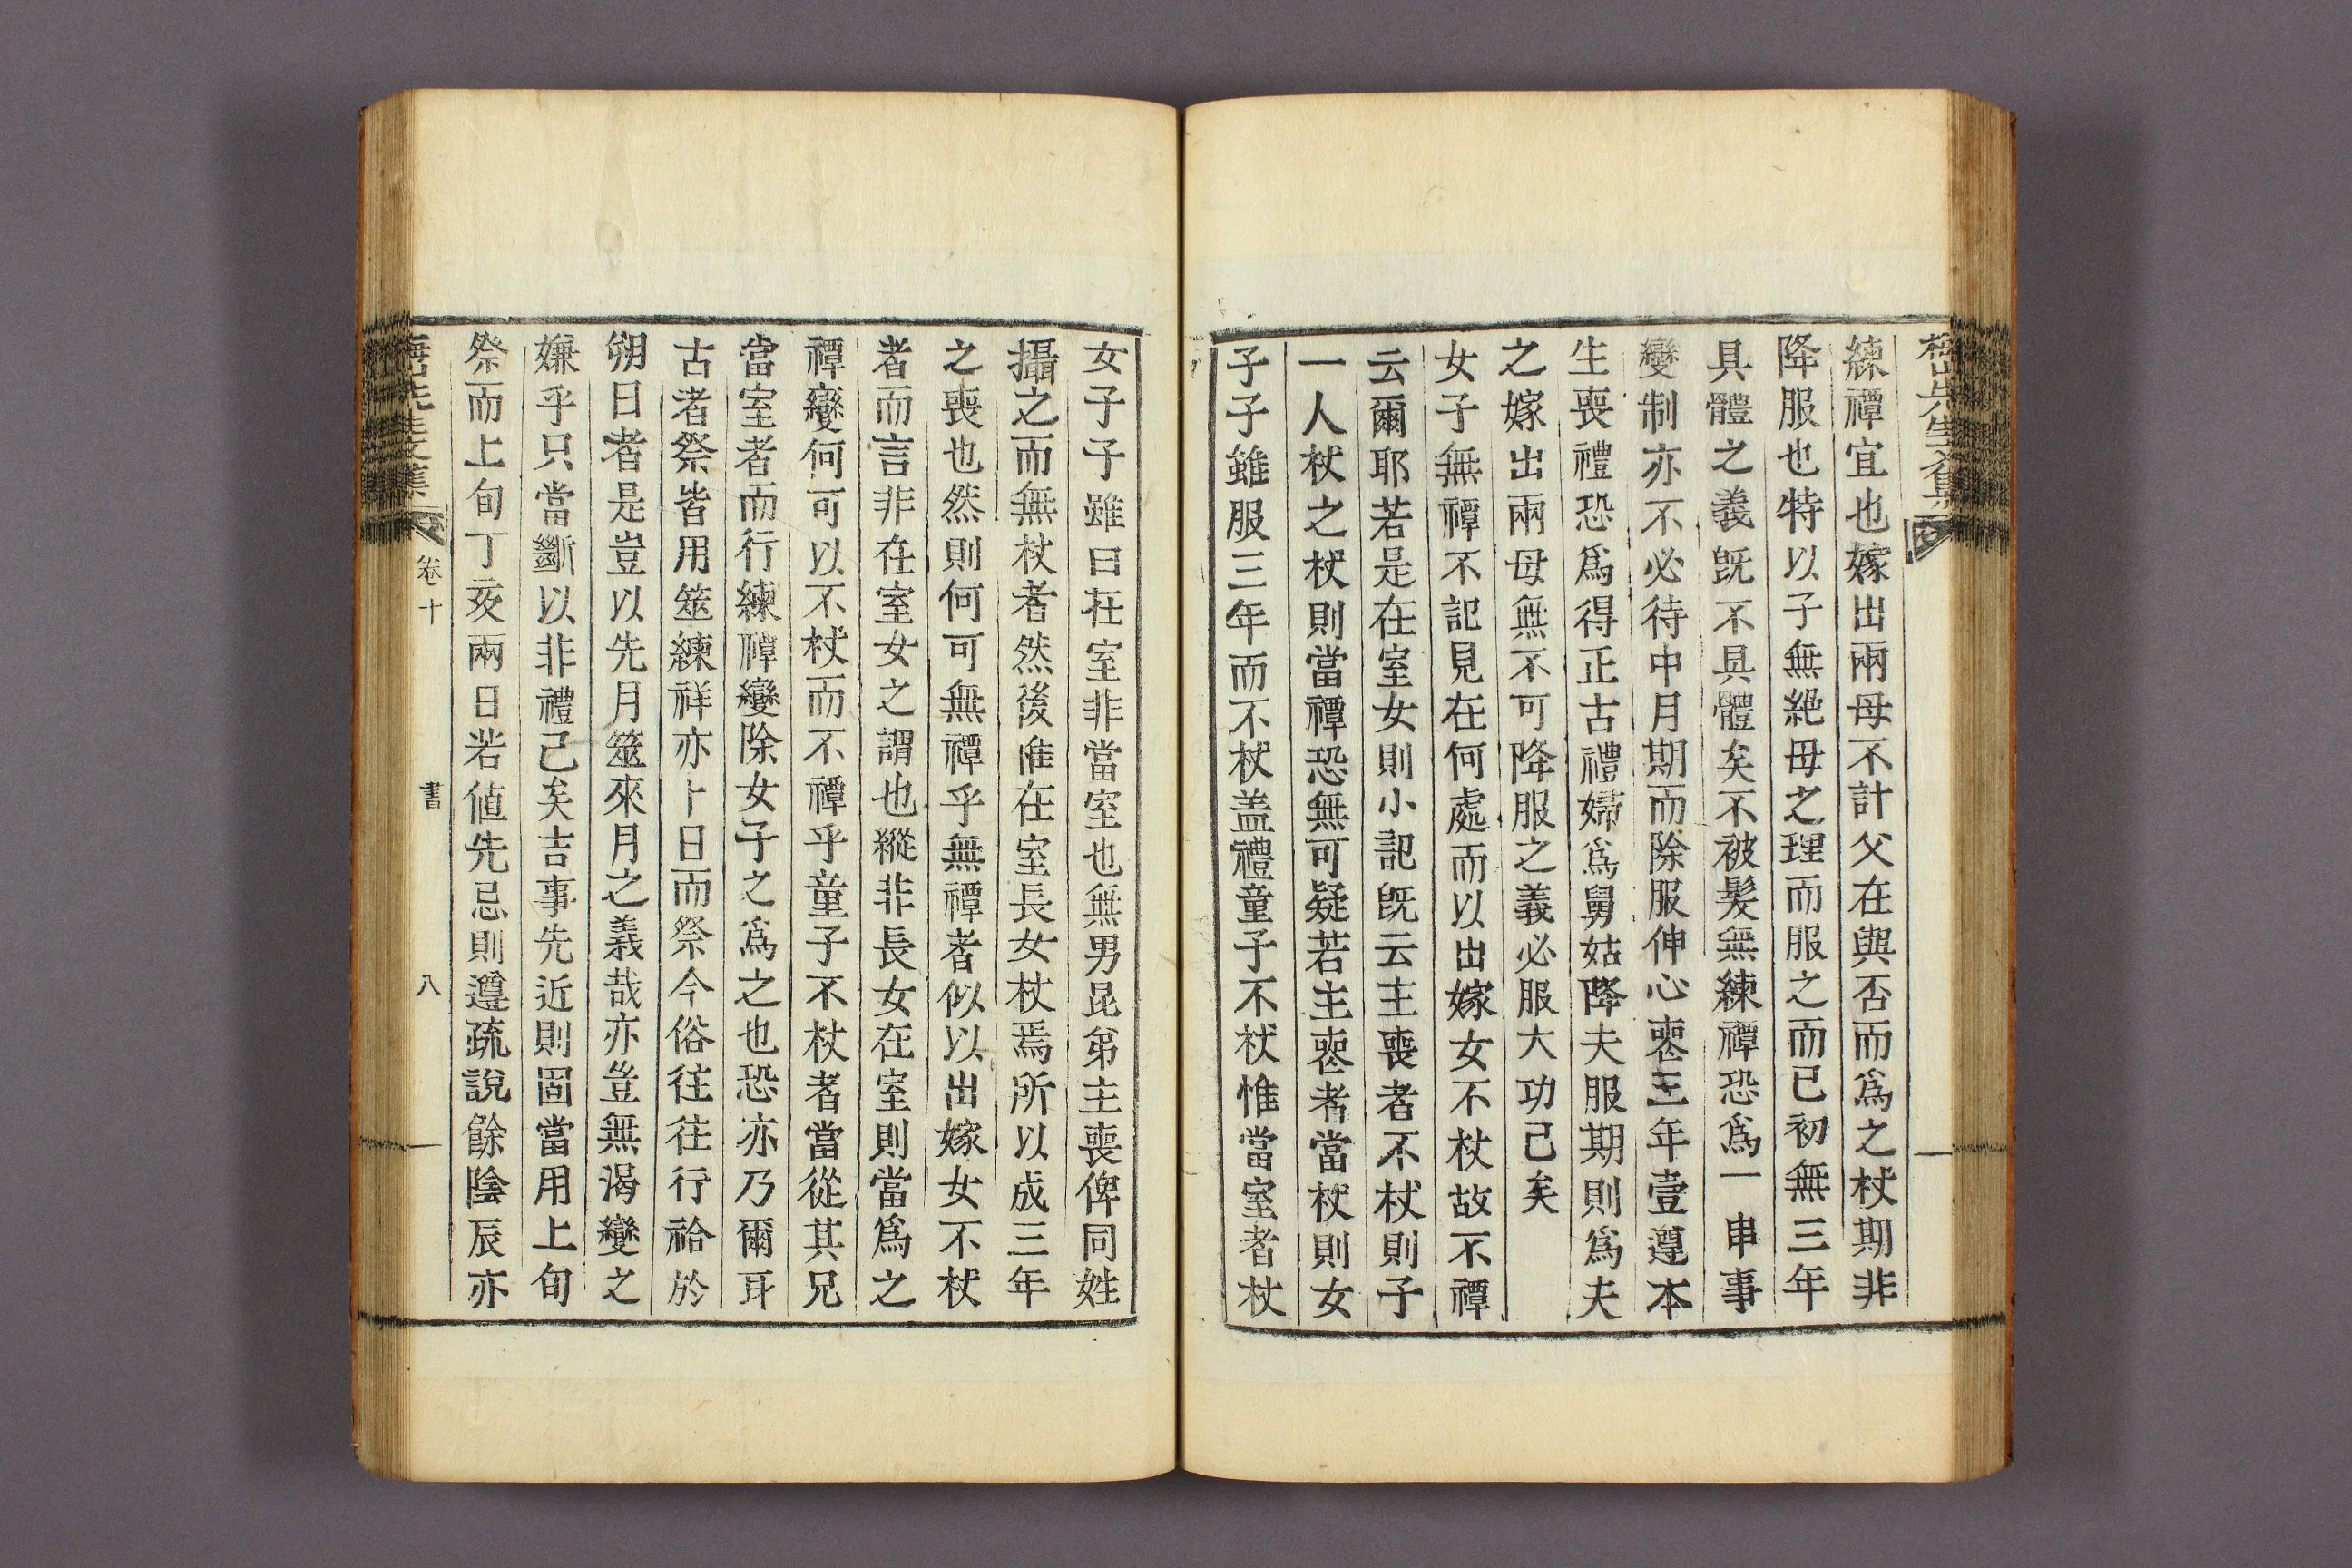 練禫宜也嫁出兩母不計父在與否而爲之杖期非
降服也特以子無絶母之理而服之而已初無三年
具體之義旣不具體矣不被髮無練禫恐爲一串事
變制亦不必待中月期而除服伸心喪三年壹遵本
生喪禮恐爲得正古禮婦爲舅姑降夫服期則爲夫
之嫁出兩母無不可降服之義必服大功已矣
女子無禫不記見在何處而以出嫁女不杖故不禫
云爾耶若是在室女則小記旣云主喪者不杖則子
一人杖之杖則當禫恐無可疑若主喪者當杖則女
子子雖服三年而不杖盖禮童子不杖惟當室者杖
女子子雖曰在室非當室也無男昆弟主喪俾同姓
攝之而無杖者然後惟在室長女杖焉所以成三年
之喪也然則何可無禫乎無禫者似以出嫁女不杖
者而言非在室女之謂也縱非長女在室則當爲之
禫變何可以不杖而不禫乎童子不杖者當從其兄
當室者而行練禫變除女子之爲之也恐亦乃爾耳
古者祭皆用筮練祥亦卜日而祭今俗往往行祫於
朔日者是豈以先月筮來月之義哉亦豈無渴變之
嫌乎只當斷以非禮已矣吉事先近則固當用上旬
祭而上旬丁亥兩日若値先忌則遵疏說餘陰辰亦
卷十
書
八